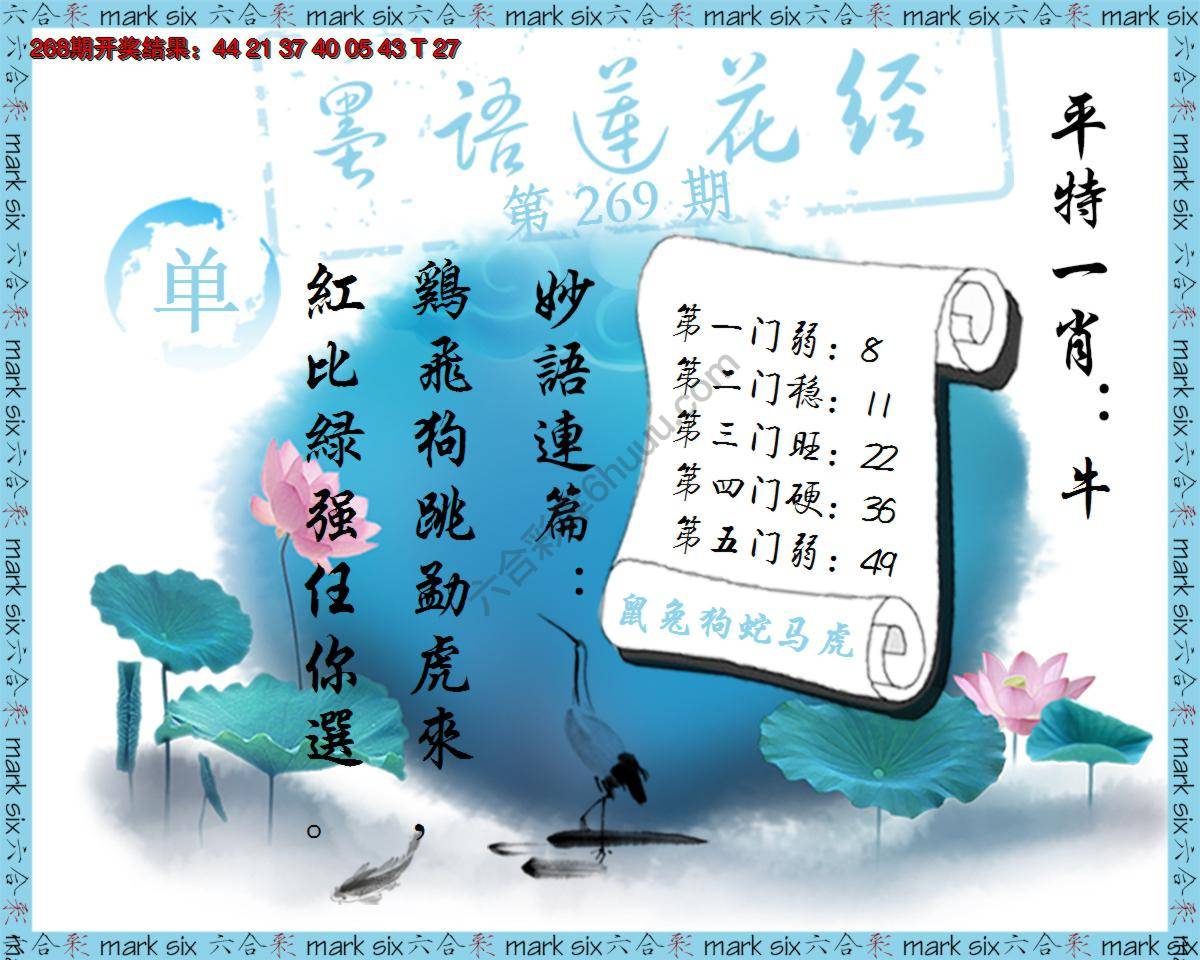 六合彩 mark six 六合彩 mark six 六合彩 mark six 六合彩 mark six 六合彩 mark six 六合彩 mark six
268期开奖结果：44 21 37 40 05 43 T 27
墨語莲花经
第 269 期
单
平特一肖：牛
妙語連篇：
鷄飛狗跳勐虎來，
紅比緑强任你選。
第一门弱：8
第二门稳：11
第三门旺：22
第四门硬：36
第五门弱：49
鼠兔狗蛇马虎
六合彩 mark six 六合彩 mark six 六合彩 mark six 六合彩 mark six 六合彩 mark six 六合彩 mark six